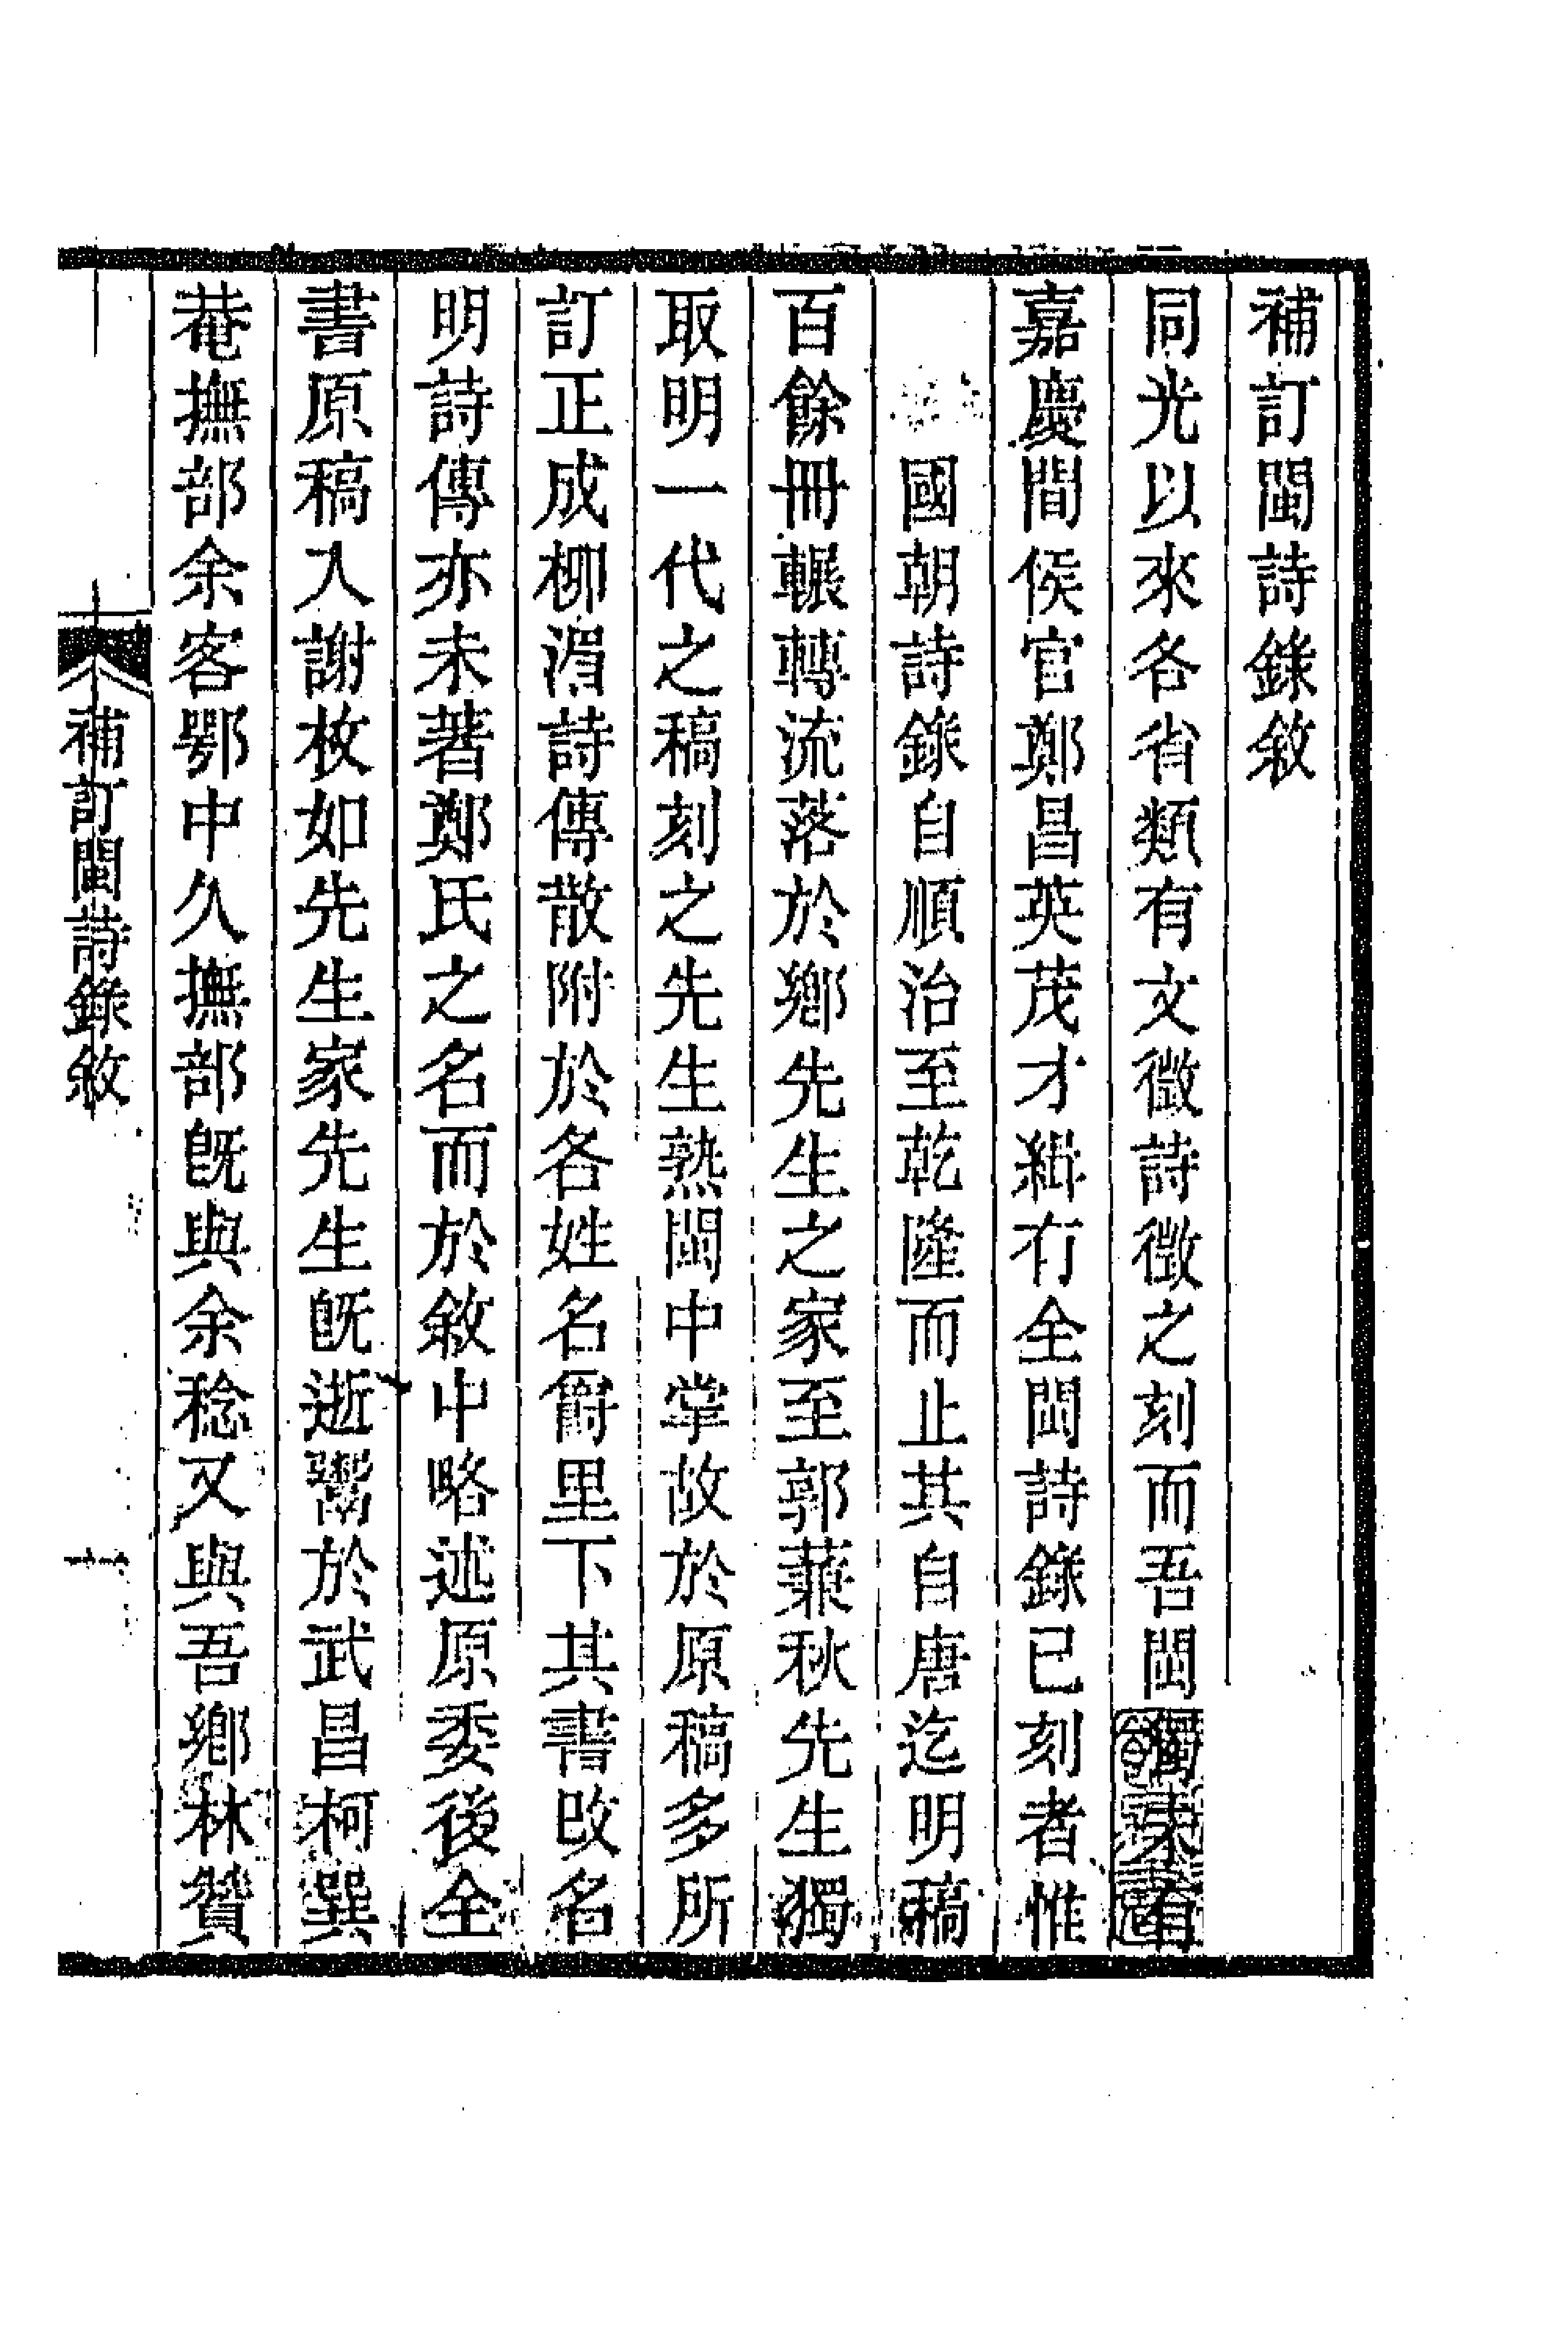 補訂閩詩錄敘
同光以來各省類有文徵詩徵之刻而吾閩獨未有
嘉慶間侯官鄭昌英茂才緝有全閩詩錄已刻者惟
國朝詩錄自順治至乾隆而止其自唐迄明稿
百餘冊輾轉流落於鄉先生之家至郭蒹秋先生獨
取明一代之稿刻之先生熟閩中掌故於原稿多所
訂正成柳湄詩傳散附於各姓名爵里下其書改名
明詩傳亦未著鄭氏之名而於敘中略述原委後全
書原稿入謝枚如先生家先生旣逝鬻於武昌柯巽
菴撫部余客鄂中久撫部旣與余稔又與吾鄉林贊
補訂閩詩錄敘 一